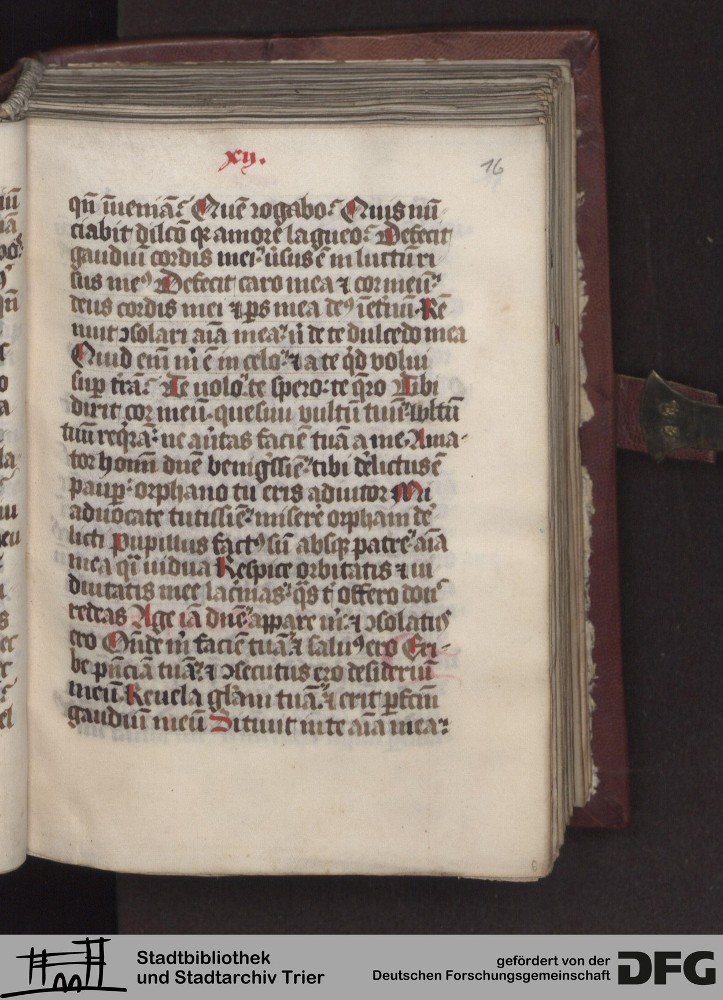 xij.
16
qn̄ īueniā? Quē rogabo? Quis nū
ciabit dilc̄o qꝛ amore lagueo? Defecit
gaudiū cordis mei? ūsus ē in luctū ri
sus meꝰ Defecit caro mea ⁊ cor meū?
deus cordis mei ⁊ ꝑs mea deꝰ īet̄nū Rē
nuit ↄsolari aīa mea? n̄ de te dulcedo mea
Quid em̄ m̄ ē in celo? ⁊ a te qd̄ volui
suꝑ trā? Te uolo? te spero? te q̄ro Tibi
dixit cor meū quesiui vultū tuū? vultū
tuū req̄rā? ne au̓tas faciē tuā a me Ama-
tor hoīm dn̄e benigssīe? tibi d̓elictus ē
pauꝑ orphano tu eris adiutor Mi
aduocate tutissīe? miserē orphani de
licti Pupillus factꝰ sū absqꝫ patre? aīa
mea qī uidua Respice orbitatis ⁊ ui
duitatis mee lac̄mas? q̄s t̄ offero don̄
redeas Age iā dn̄e? appare m̄? ⁊ ↄsolatꝰ
ero On̄de m̄ faciē tuā? ⁊ saluꝰ ero Exi-
be pn̄ciā tuā? ⁊ ↄsecutus ero desideriū
meū Reuela glām tuā? ⁊ erit ꝑfcm̄
gaudiū meū Sitiuit in te aīa mea?
Stadtbibliothek
und Stadtarchiv Trier
gefördert von der
Deutschen Forschungsgemeinschaft
DFG